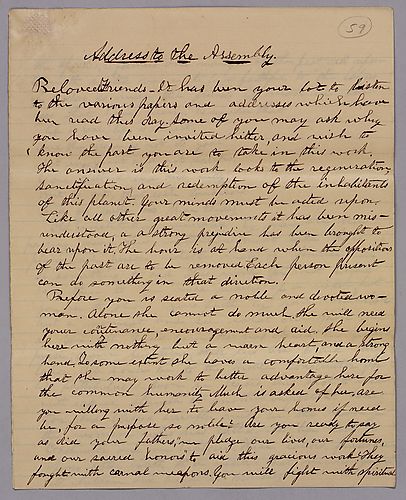 59
Address to the Assembly.
Beloved Friends - It has been your lot to listen
to the various papers and addresses which have
been read this day. Some of you may ask why
you have been invited hither, and wish to
know the part you are to take in this work.
The answer is this work looks to the regeneration,
sanctification, and redemption of the inhabitents
of this planet. Your minds must be acted upon.
Like all other great movements it has been mis-
understood, a a strong prejudice has been brought to
bear upon it. The hour is at hand when the oppositions
of the past are to be removed. Each person present
can do something in that direction.
Before you is seated a noble and devoted wo-
man. Alone she cannot do much. She will need
your countenance, encouragement and aid. She begins
here with nothing but a warm heart, and a strong
hand. To some extent she leaves a comfortable home
that she may work to better advantage here for
the common humanity. Much is asked of her, are
you willing with her to leave your homes if need
be, for a purpose so noble? Are you ready to say
as did your fathers, "we pledge our lives, our fortunes,
and our sacred honors" to aid this gracious work? They
fought with carnal weapons. You will fight with spiritual